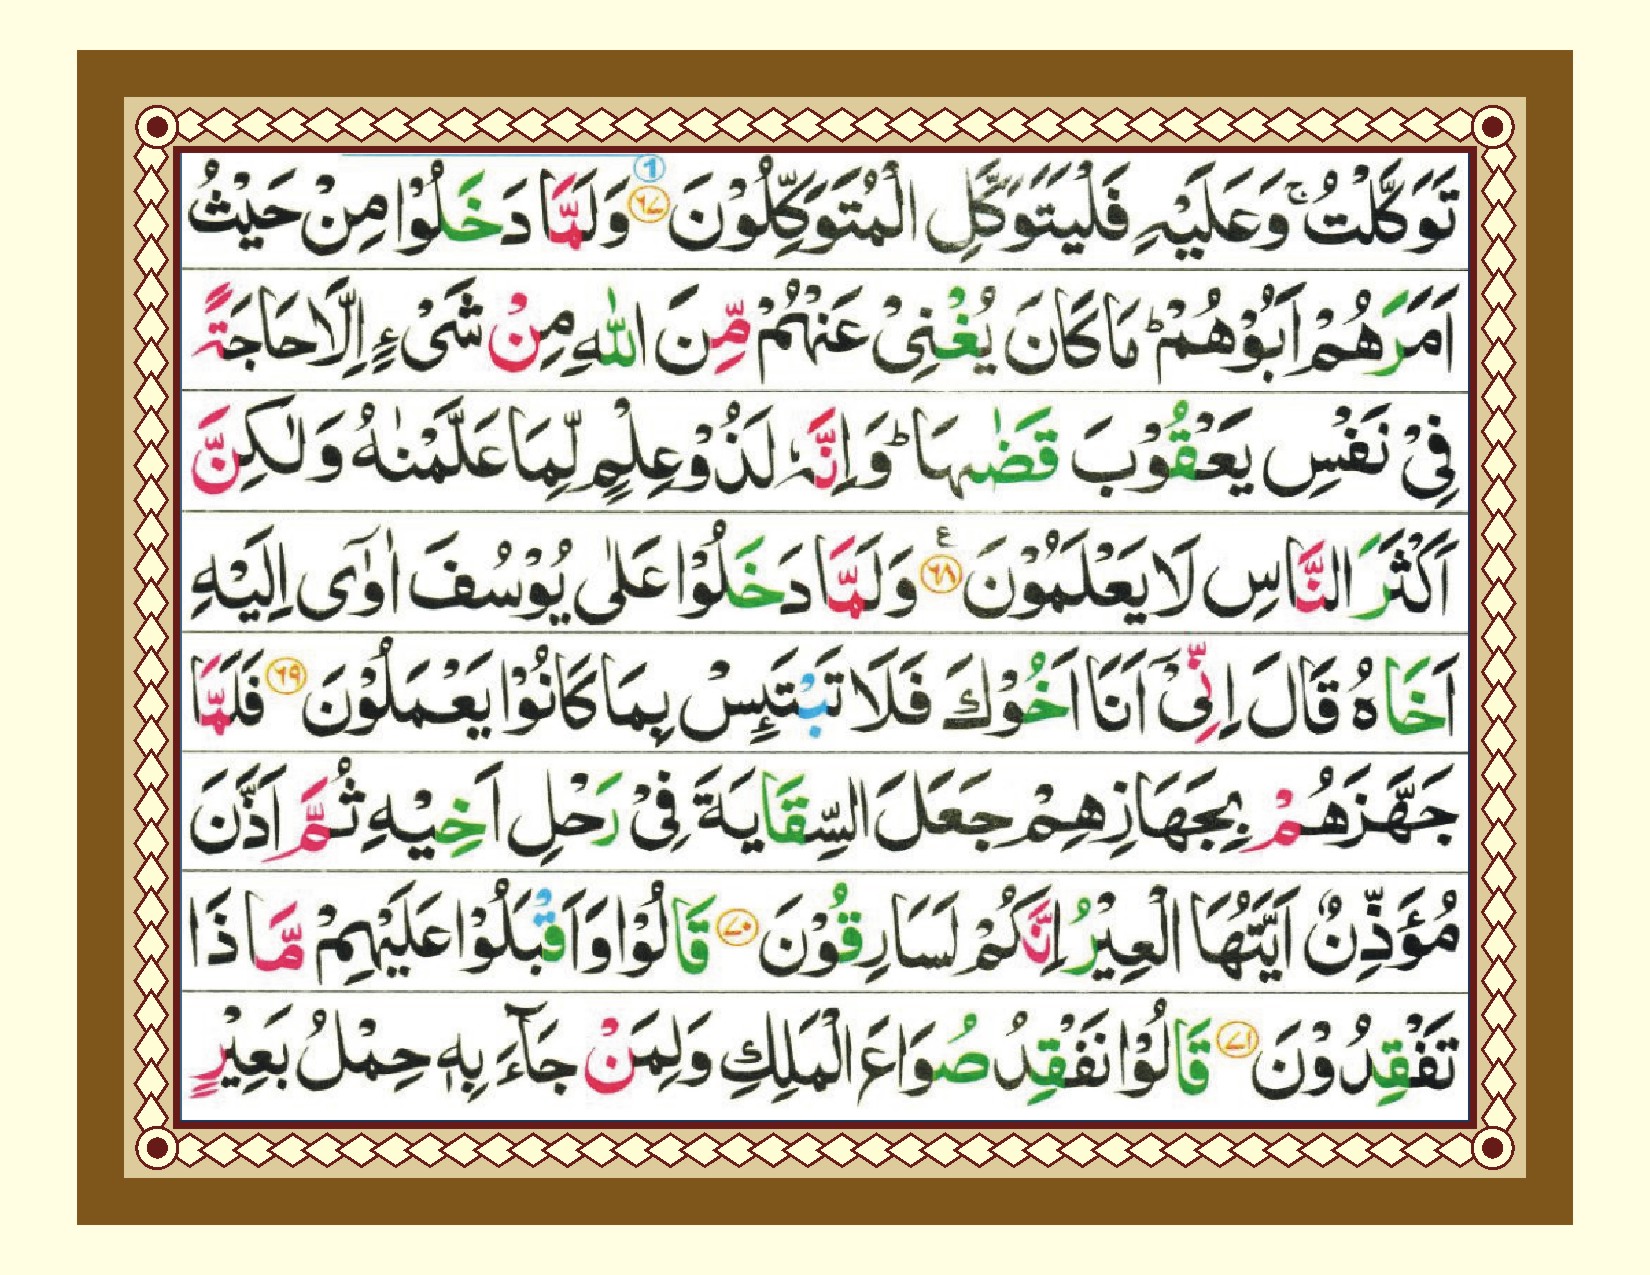 تَوَكَّلْتُ ۚ وَعَلَيْهِ فَلْيَتَوَكَّلِ الْمُتَوَكِّلُوْنَ ﴿۶۷﴾ 1 وَلَمَّا دَخَلُوْا مِنْ حَيْثُ
اَمَرَهُمْ اَبُوْهُمْ ؕ مَا كَانَ يُغْنِىْ عَنْهُمْ مِّنَ اللّٰهِ مِنْ شَىْءٍ اِلَّا حَاجَةً
فِىْ نَفْسِ يَعْقُوْبَ قَضٰىهَا ؕ وَاِنَّهٗ لَذُوْ عِلْمٍ لِّمَا عَلَّمْنٰهُ وَلٰكِنَّ
اَكْثَرَ النَّاسِ لَا يَعْلَمُوْنَ ﴿۶۸﴾ ع وَلَمَّا دَخَلُوْا عَلٰى يُوْسُفَ اٰوٰٓى اِلَيْهِ
اَخَاهُ قَالَ اِنِّىْۤ اَنَا اَخُوْكَ فَلَا تَبْتَئِسْ بِمَا كَانُوْا يَعْمَلُوْنَ ﴿۶۹﴾ فَلَمَّا
جَهَّزَهُمْ بِجَهَازِهِمْ جَعَلَ السِّقَايَةَ فِىْ رَحْلِ اَخِيْهِ ثُمَّ اَذَّنَ
مُؤَذِّنٌ اَيَّتُهَا الْعِيْرُ اِنَّكُمْ لَسَارِقُوْنَ ﴿۷۰﴾ قَالُوْا وَاَقْبَلُوْا عَلَيْهِمْ مَّا ذَا
تَفْقِدُوْنَ ﴿۷۱﴾ قَالُوْا نَفْقِدُ صُوَاعَ الْمَلِكِ وَلِمَنْ جَآءَ بِهٖ حِمْلُ بَعِيْرٍ